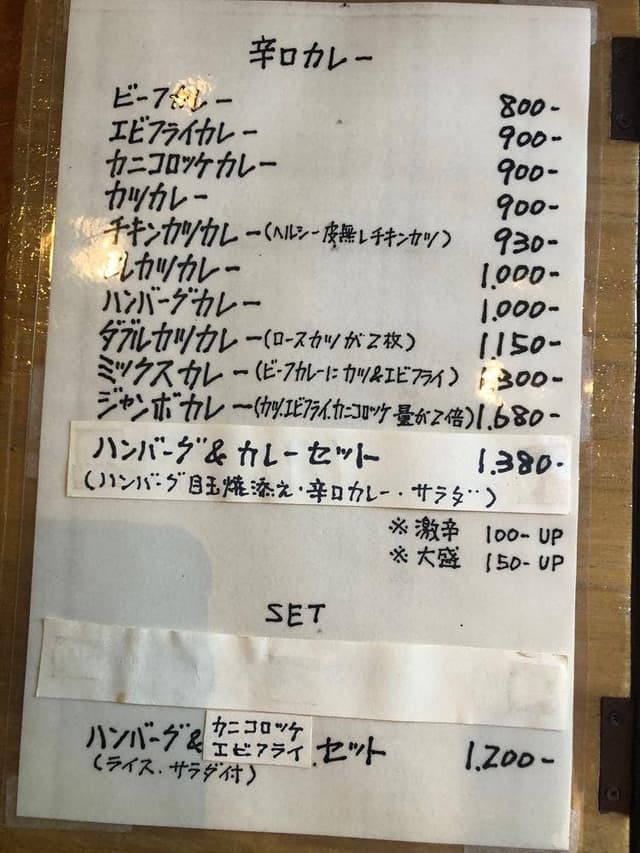 辛口カレー
ビーフカレー 800-
エビフライカレー 900-
カニコロッケカレー 900-
カツカレー 900-
チキンカツカレー(ヘルシー皮無しチキンカツ) 930-
レカツカレー 1.000-
ハンバーグカレー 1.000-
ダブルカツカレー(ロースカツが2枚) 1.150-
ミックスカレー(ビーフカレーにカツ&エビフライ) 1.300-
ジャンボカレー(カツ.エビフライ.カニコロッケ 量が2倍) 1.680-
ハンバーグ&カレーセット 1.380-
(ハンバーグ目玉焼添え・辛口カレー・サラダ)
※激辛 100-UP
※大盛 150-UP
SET
カニコロッケ
ハンバーグ& エビフライ .セット 1.200-
(ライス.サラダ付)